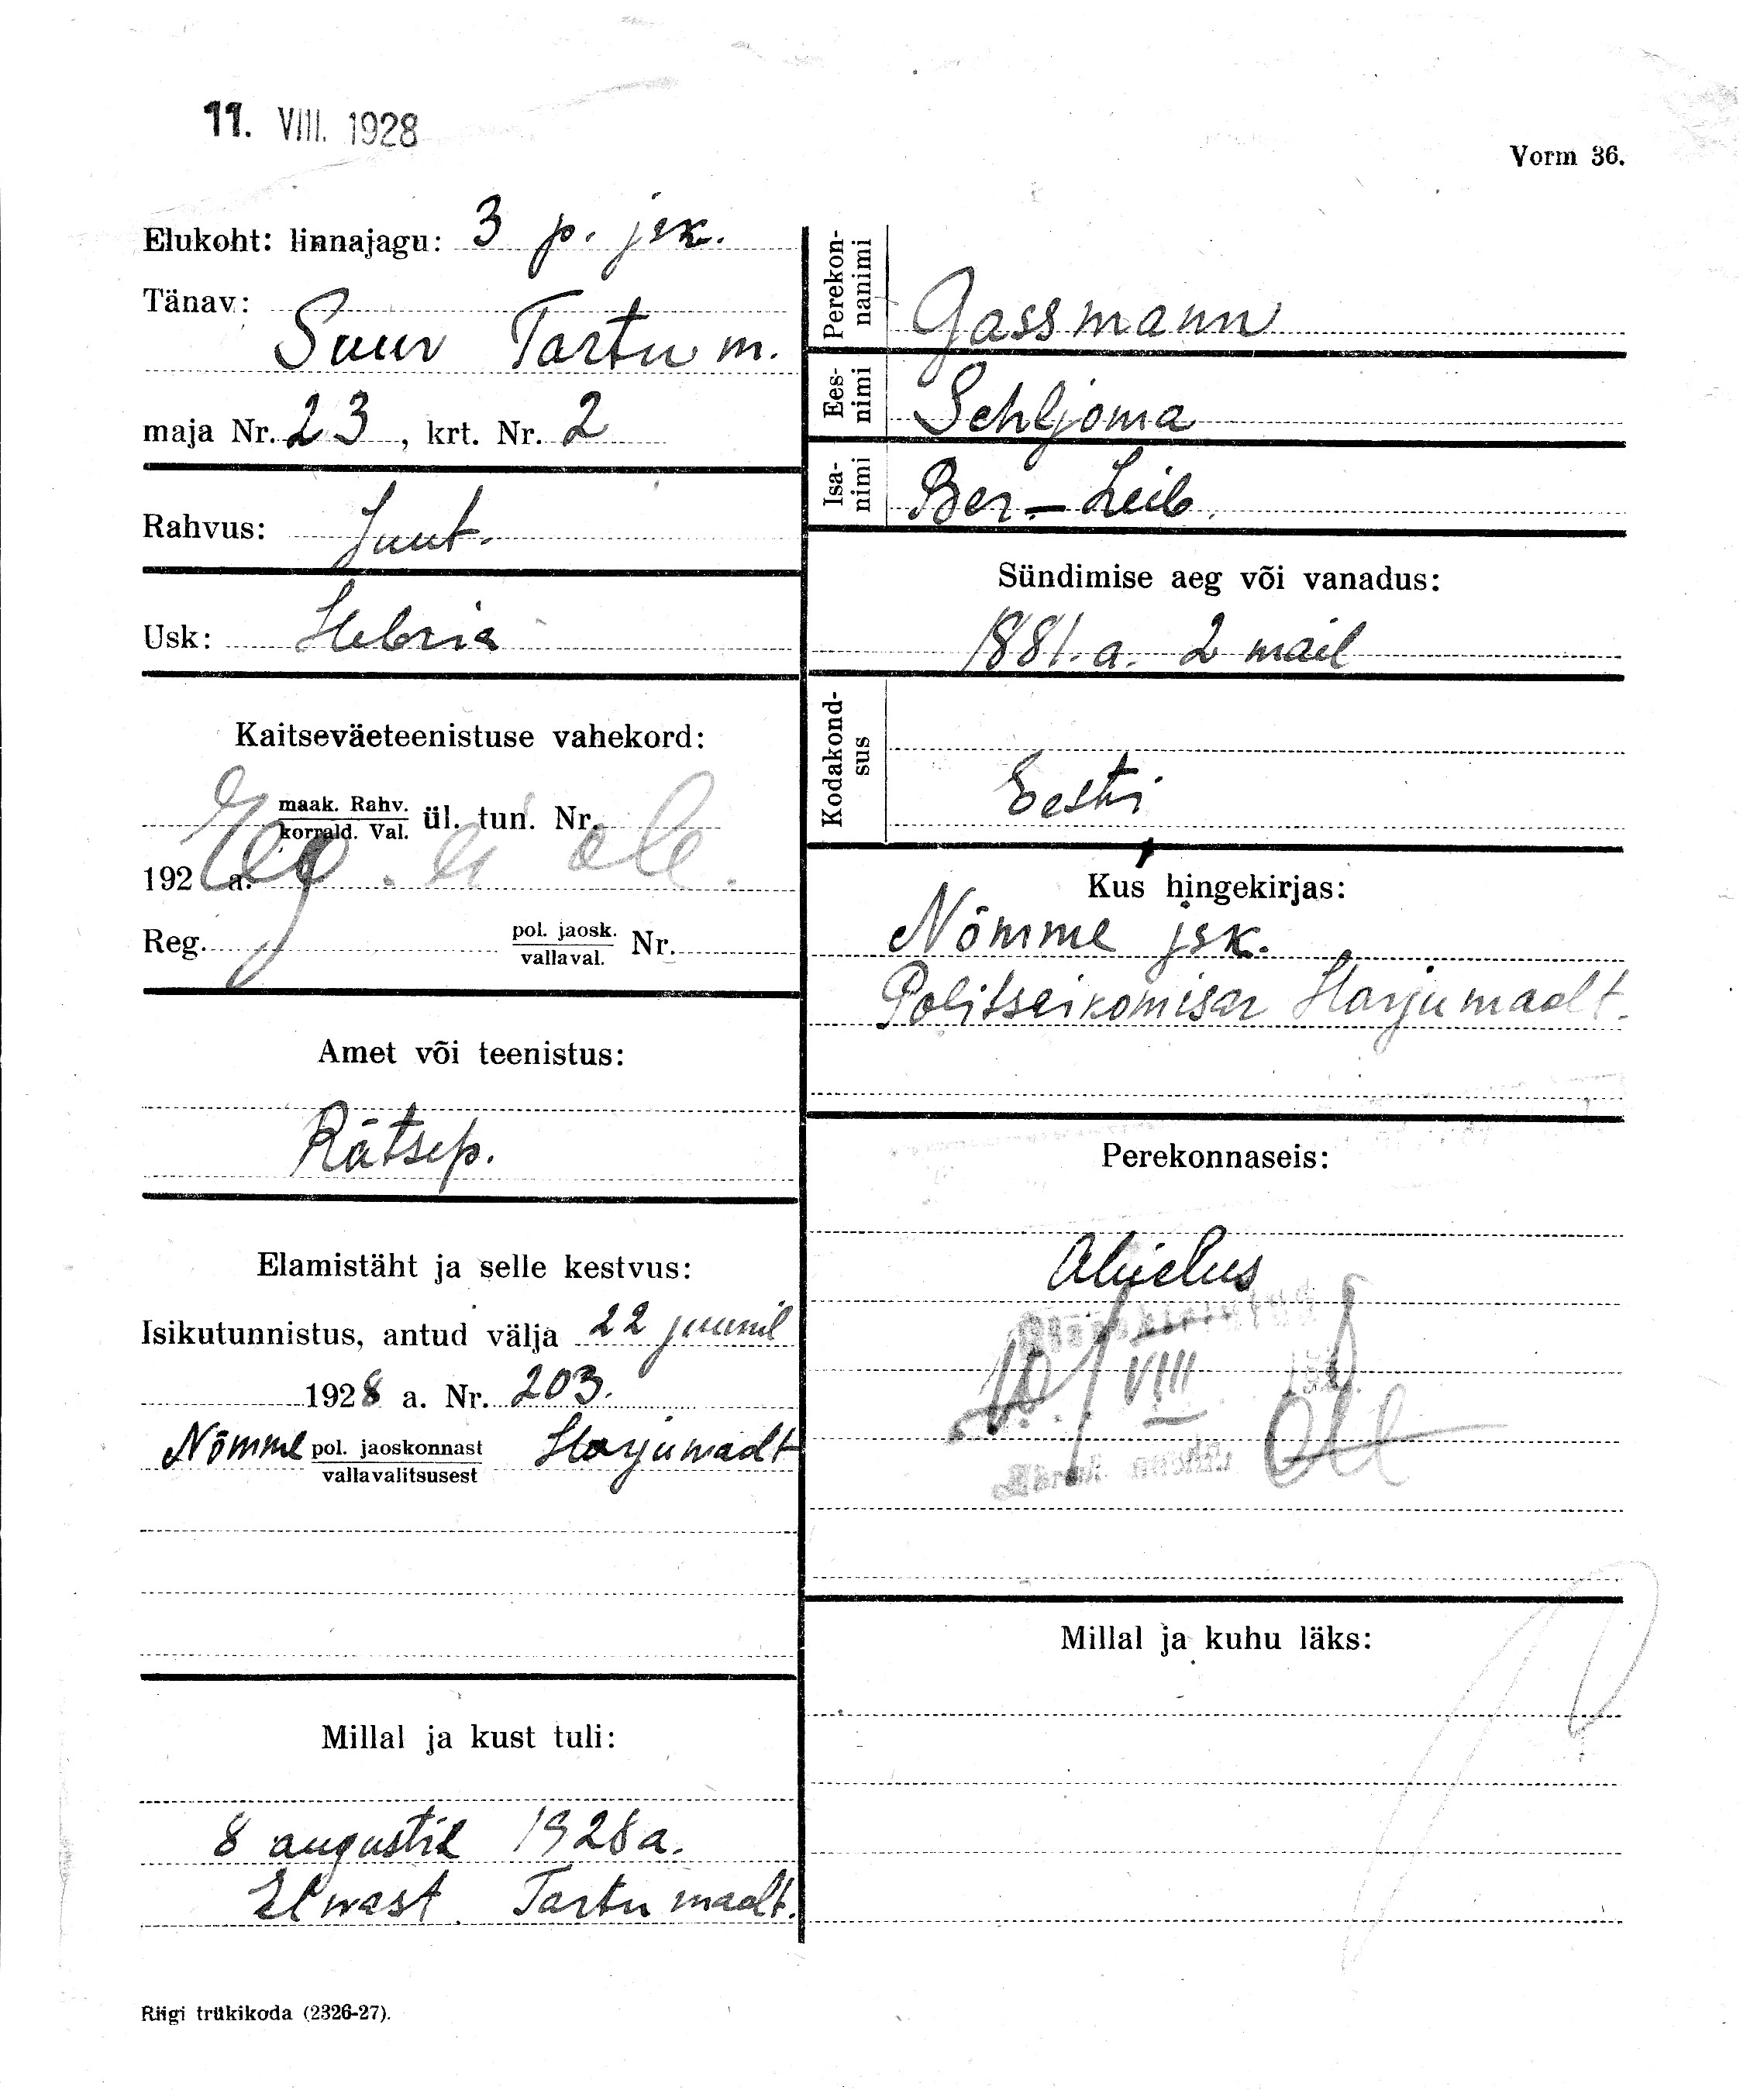 11. VIII. 1928
Vorm 36.
Elukoht: linnajagu: 3 p. jsk.
Tänav:
Suur Tartu m.
maja Nr. 23, krt. Nr. 2
Rahvus: Juut.
Usk: Hebria
Kaitseväeteenistuse vahekord:
maak. Rahv. ül. tun. Nr.
korrald. Val.
192 a. ei ole.
Reg. pol. jaosk. Nr.
vallaval.
Amet või teenistus:
Rätsep.
Elamistäht ja selle kestvus:
Isikutunnistus, antud välja 22 juunil
1928 a. Nr. 203.
Nõmme pol. jaoskonnast Harjumaalt
vallavalitsusest
Millal ja kust tuli:
8 augustil 1928 a.
Elwast Tartumaalt.
Perekon-
nanimi
Gassmann
Ees-
nimi
Schljoma
Isa-
nimi
Ber-Leib.
Sündimise aeg või vanadus:
1881. a. 2 mail
Kodakond-
sus
Eesti
Kus hingekirjas:
Nõmme jsk.
Politseikomisar Harjumaalt.
Perekonnaseis:
Abielus
10/VIII
Millal ja kuhu läks:
Riigi trükikoda (2326-27).